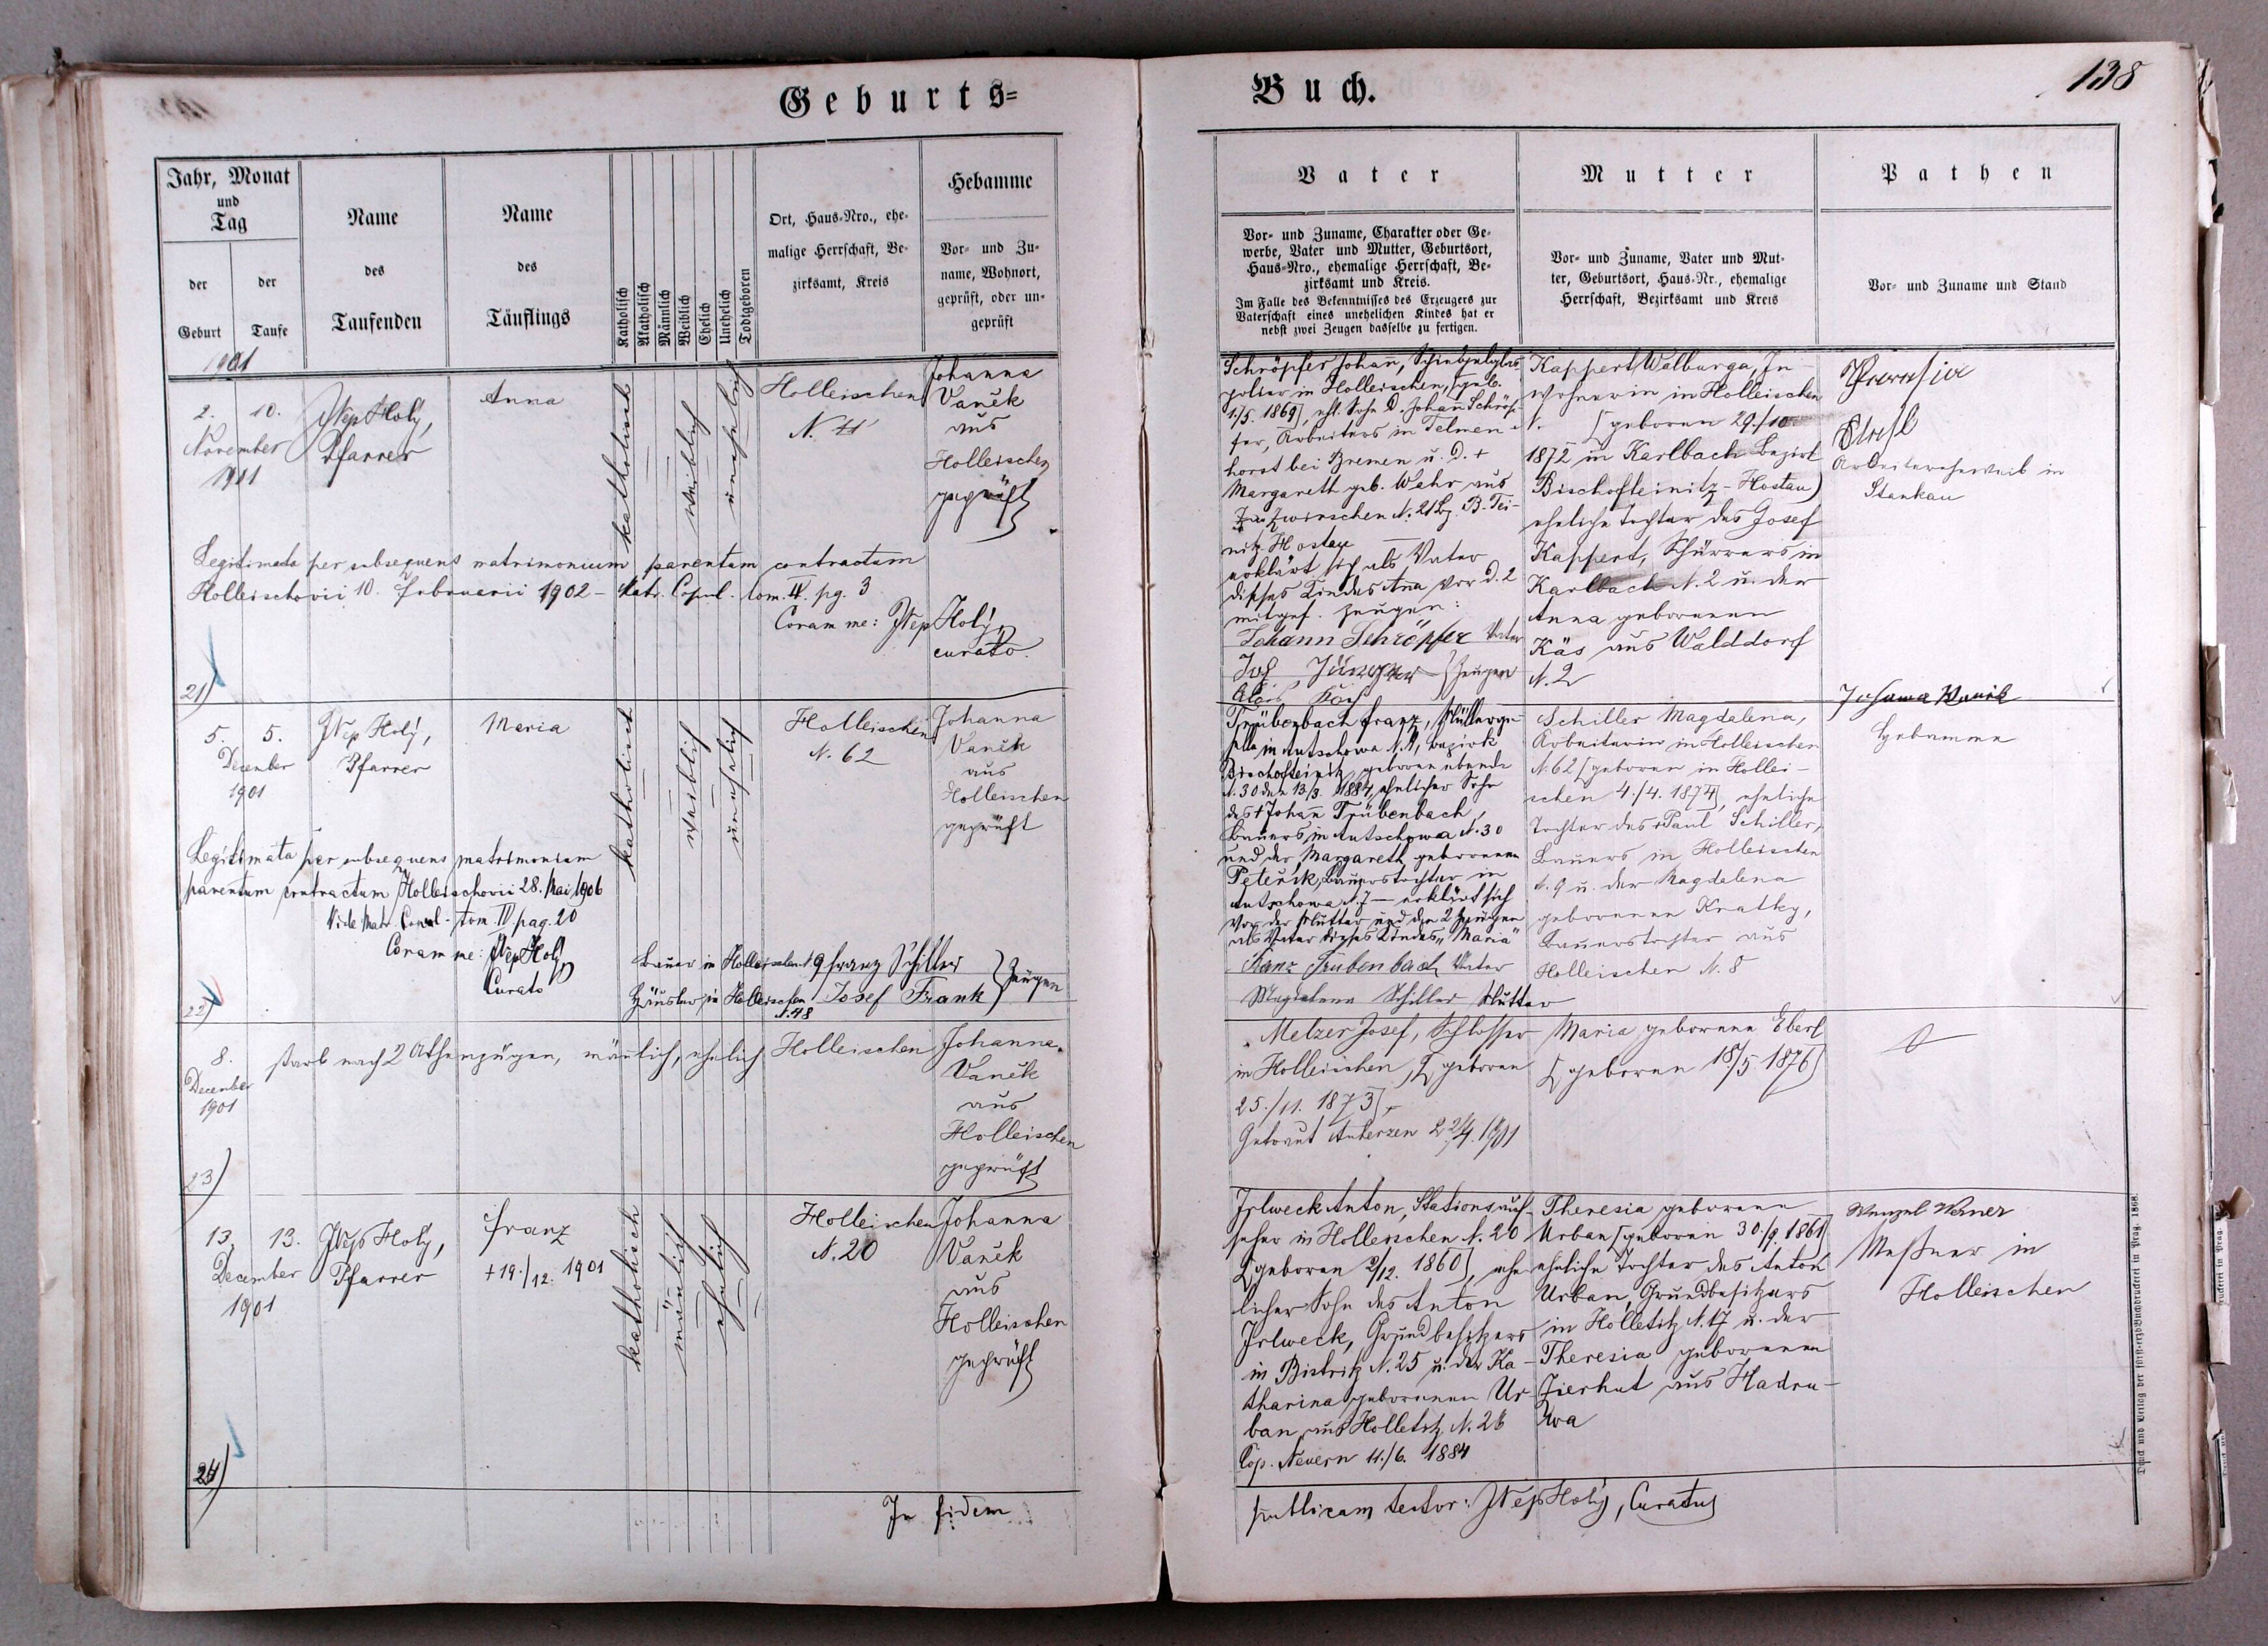 Geburts=
Buch.
138
Jahr, Monat
und
Tag
der
Geburt
der
Taufe
Name
des
Taufenden
Name
des
Täuflings
Katholisch
Akatholisch
Männlich
Weiblich
Ehelich
Unehelich
Todtgeboren
Ort, Haus-Nro., ehe-
malige Herrschaft, Be-
zirksamt, Kreis
Hebamme
Vor- und Zu-
name, Wohnort,
geprüft, oder un-
geprüft
Vater
Vor- und Zuname, Charakter oder Ge-
werbe, Vater und Mutter, Geburtsort,
Haus-Nro., ehemalige Herrschaft, Be-
zirksamt und Kreis.
Im Falle des Bekenntnisses des Erzeugers zur
Vaterschaft eines unehelichen Kindes hat er
nebst zwei Zeugen dasselbe zu fertigen.
Mutter
Vor- und Zuname, Vater und Mut-
ter, Geburtsort, Haus-Nr., ehemalige
Herrschaft, Bezirksamt und Kreis
Pathen
Vor- und Zuname und Stand
1901
2. 10.
November
1901
JNep Holý,
Pfarrer
Anna
katholisch
weiblich
unehelich
Holleischen
N. 11
Johanna
Vaněk
aus
Holleischen
geprüft
Legitimata per subsequens matrimonium parentum contractum
Holleischovii 10. februarii 1902 - Matr. Copul. tom. IV. pg. 3
Coram me: JNep Holý,
curato.
21)
Schröpfer Johan̄,
polier in Holleischen, [geb.
1./5. 1869], ehl. Sohn d. Johan̄ Schröp-
fer, Arbeiters in Telmen-
horst bei Bremen u. d. +
Margareth geb. Wahr aus
Zwirschen N. 21 Bz. B-Tei-
nitz-Hostau
erklärt sich als Vater
dieses Kindes Ana vor d. 2
mitgef. Zeugen:
Johann Schröpfer Vater
Zeugen
Kappert Walburga, In-
wohnerin in Holleischen
[geboren 29./10
1872 in Karlbach Bezirk
Bischofteinitz-Hostau)
eheliche Tochter des Josef
Kappert, in
Karlbach N. 2 u. der
Anna geborenen
Käs aus Walddorf
N. 2
Arbeitersehweib in
Stankau
5. 5.
December
1901
JNep Holý,
Pfarrer
Maria
katholisch
weiblich
unehelich
Holleischen
N. 62
Johanna
Vaněk
aus
Holleischen
geprüft
Legitimata per subsequens matrimonium
parentum contractum Holleischovii 28. Mai 1906
Vide Matr. Copul - tom. IV pag. 20
Coram me: JNep Holý,
Curato
Bauer in Holleischen N. 9 Franz Schiller
Häusler in Holleischen Josef Frank } Zeugen
N. 48
22)
Trübenbach Franz, Müllerge-
selle in Autschowa N. 1, Bezirk
Bischofteinitz, geboren ebenda
N. 30 den 13/3. 1884, ehelicher Sohn
des + Johan̄ Trübenbach,
Bauers in Autschowa N. 30
und der Margareth geborenen
Peteřik, Bauerstochter in
Autschowa N. 7 - erklärt sich
vor der Mutter und den 2 Zeugen
als Vater dieses Kindes „Maria"
Franz Trübenbach Vater
Magdalena Schiller Mutter
Schiller Magdalena,
Arbeiterin in Holleischen
N. 62 [geboren in Hollei-
schen 4./4. 1874], eheliche
Tochter des + Paul Schiller,
Bauers in Holleischen
N. 9 u. der Magdalena
geborenen Kratky,
Bauerstochter aus
Holleischen N. 8
Johana Vaněk
Hebamme
8.
December
1901
starb nach 2 Athemzügen, mänlich, ehelich
Holleischen
Johanna
Vaněk
aus
Holleischen
geprüft
23)
Melzer Josef, Schlosser
in Holleischen, [geboren
25./11. 1873],
Getraut Auherzen 22/4. 1901
Maria geborene Eberl
[geboren 18/5. 1876]
13. 13.
December
1901
JNep Holý,
Pfarrer
Franz
+ 19./12. 1901
katholisch
mänlich
ehelich
Holleischen
N. 20
Johanna
Vaněk
aus
Holleischen
geprüft
24)
Irlweck Anton, Stationsauf-
seher in Holleischen N. 20
[geboren 2/12. 1860], ehe-
licher Sohn des Anton
Irlweck, Grundbesitzers
in Bistritz N. 25 u. der Ka-
tharina geborenen Ur-
ban aus Holletitz N. 26
Cop. Neuern 11./6. 1884
Theresia geborene
Urban [geboren 30./9. 1861]
eheliche Tochter des Anton
Urban, Grundbesitzers
in Holletitz N. 17 u. der
Theresia geborenen
Zierhut aus Hadru-
wa
Wenzel Werner
Meßner in
Holleischen
In fidem
publicam testor: JNep Holý, Curatus
Druck und Verlag der fürst-erzb Buchdruckerei in Prag. 1868.